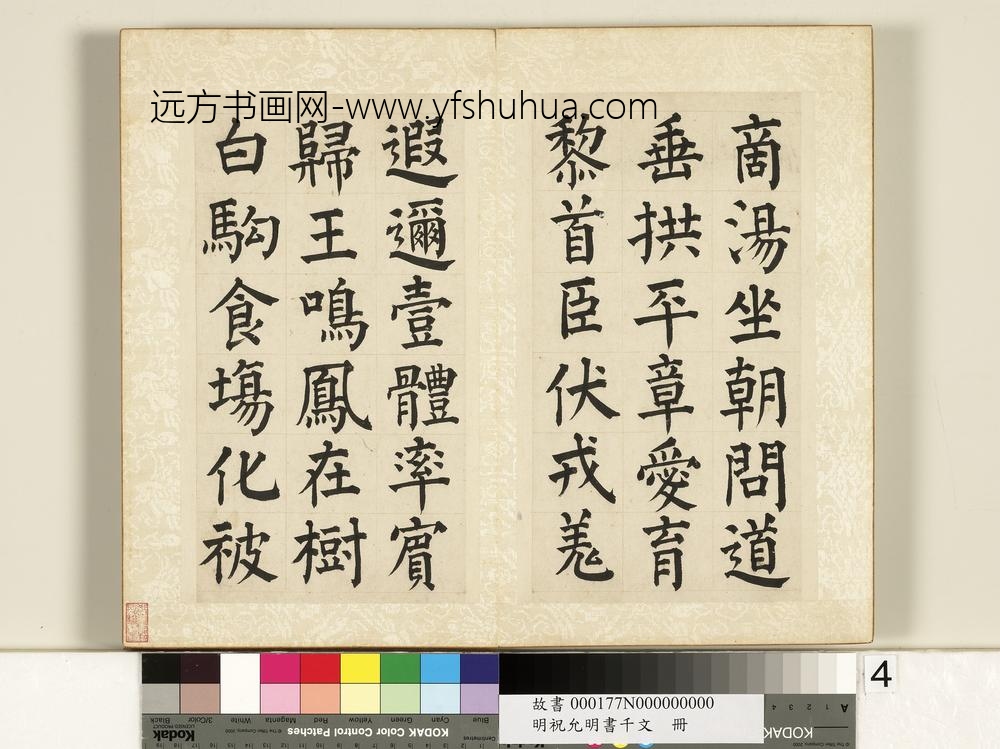 远方书画网-www.yfshuhua.com
商湯坐朝問道
垂拱平章愛育
黎首臣伏戎羗
遐邇壹體率賓
歸王鳴鳳在樹
白駒食場化被
4
故書 000177N000000000
明祝允明書千文 冊
Blue
Cyan
Green
Yellow
Red
Magenta
White
3/Color
Black
KODAK Color Control Patches
Kodak
LICENSED PRODUCT
© The Tiffen Company, 2000
Centimetres
KODAK
A 1 2 3 4